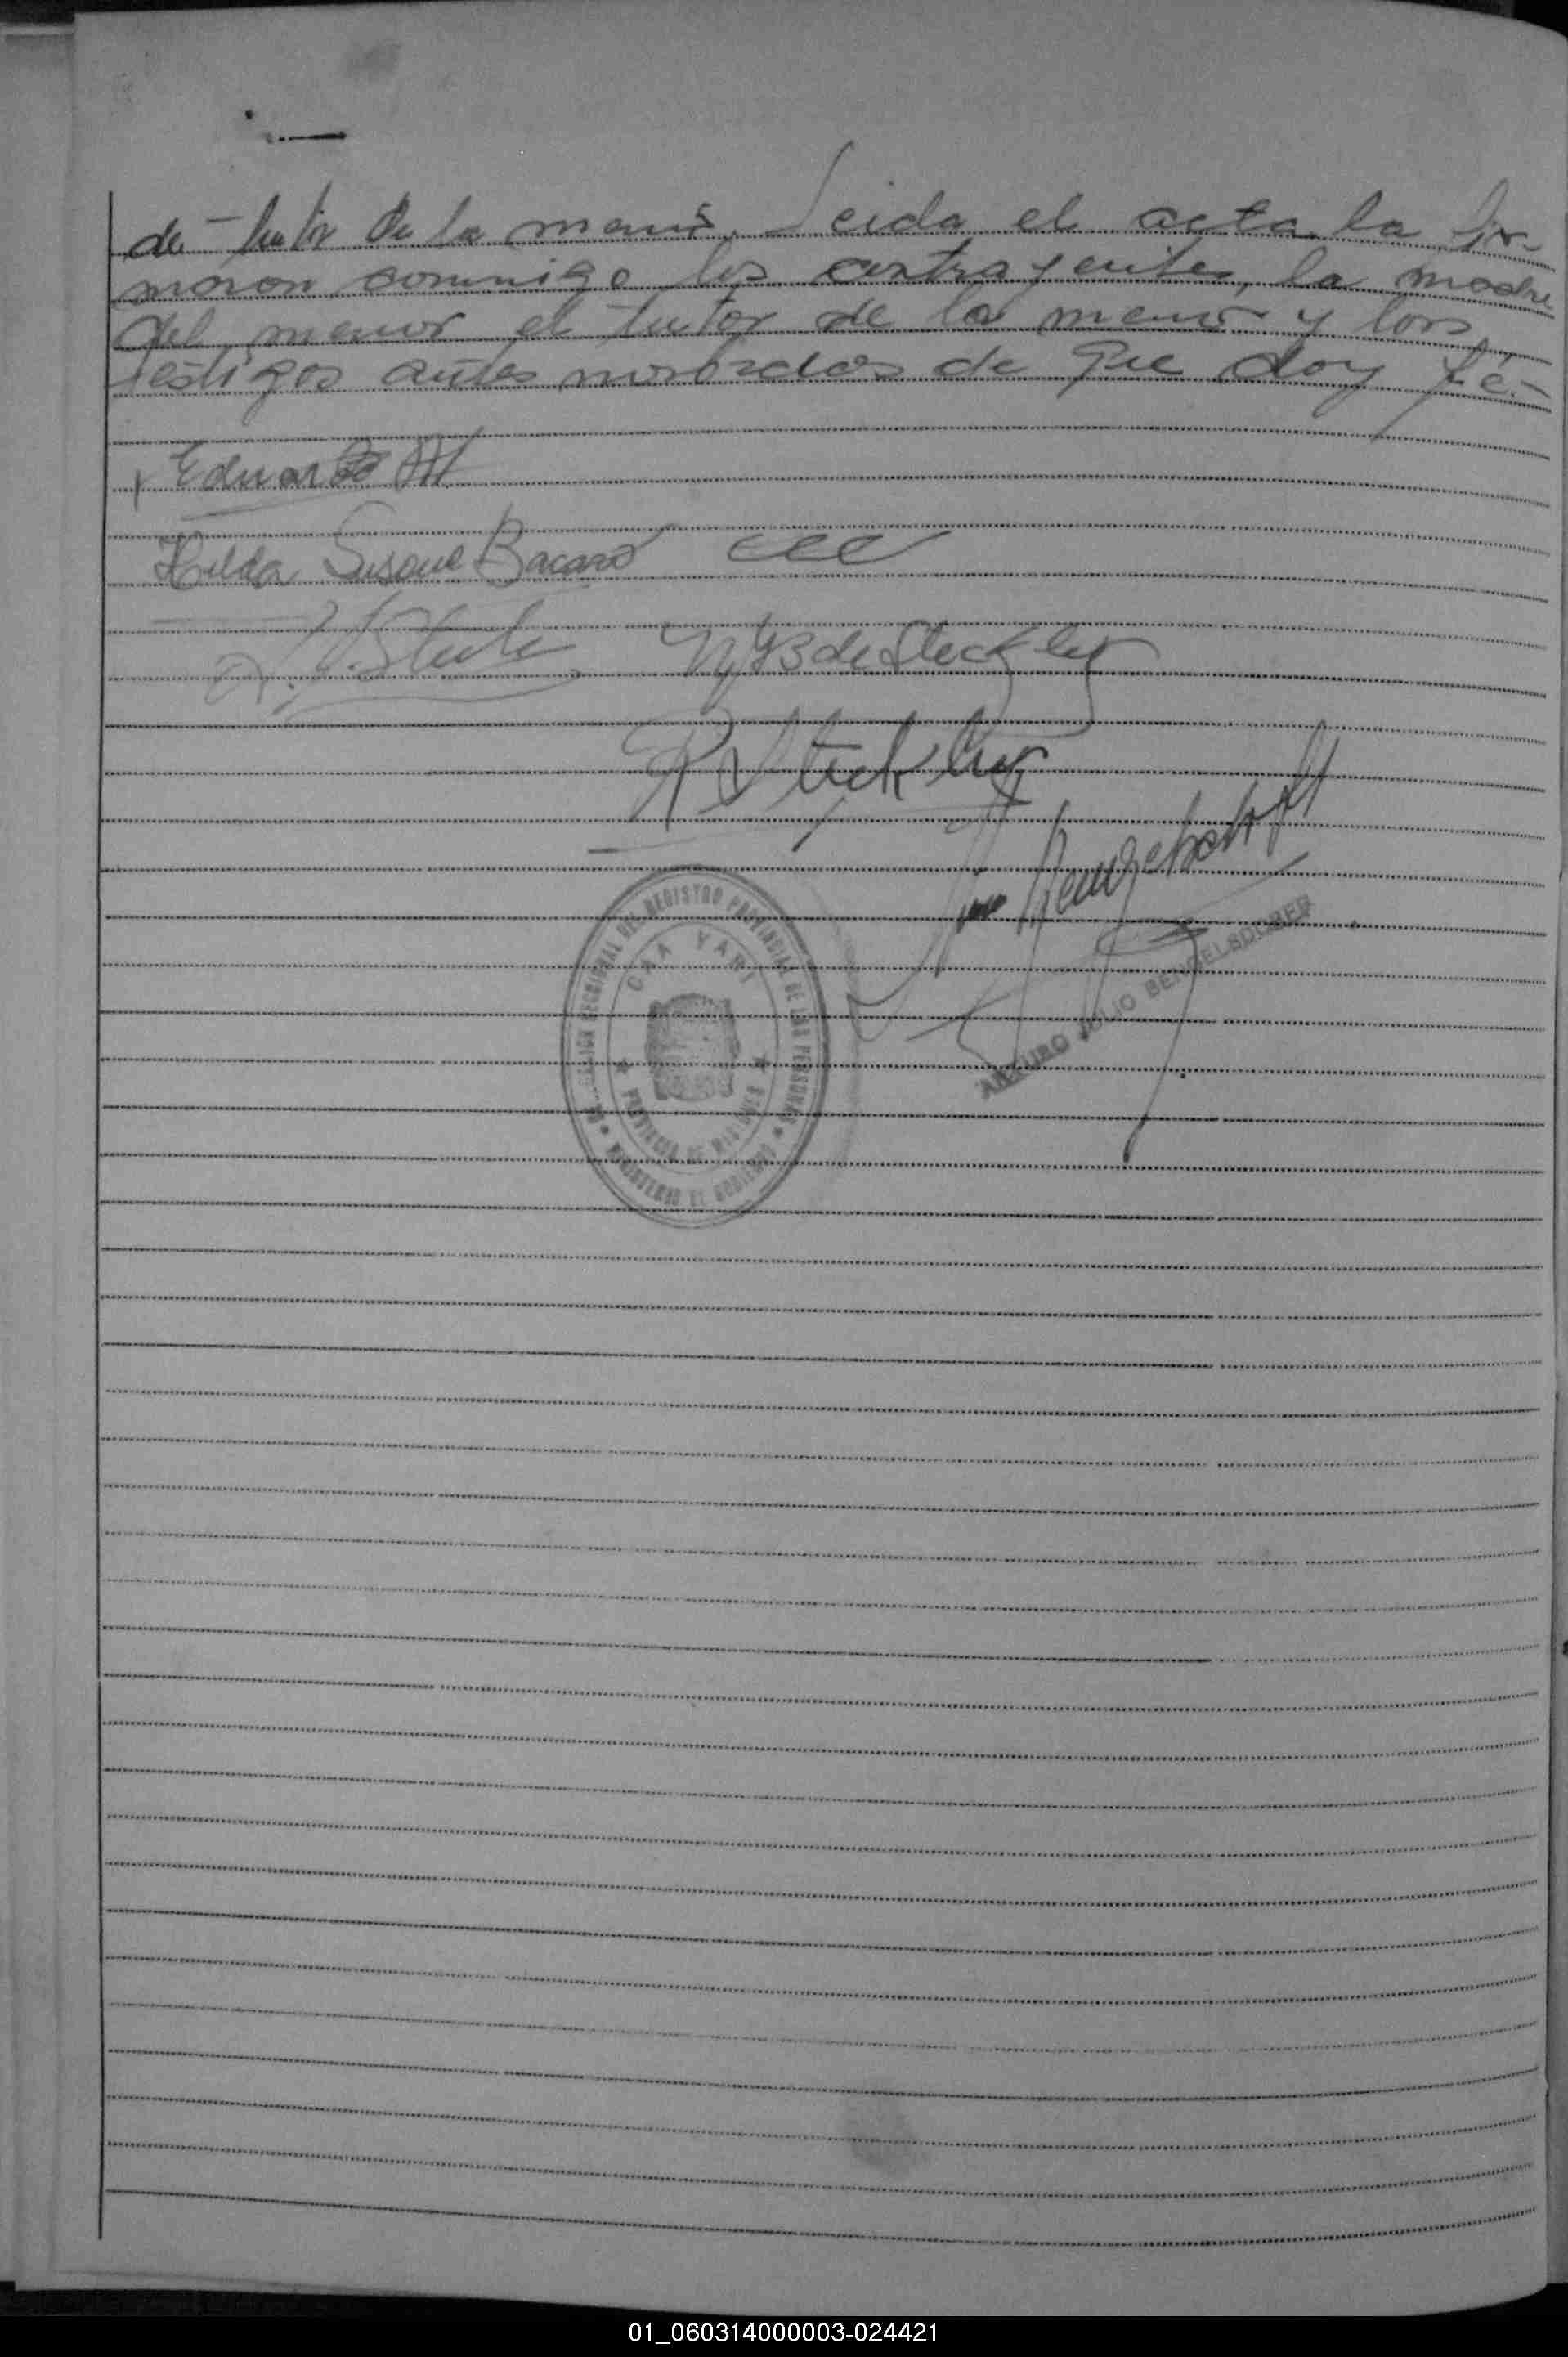 de tutor de la menor. Leida el acta la fir-
maron conmigo los contrayentes, la madre
del menor el tutor de la menor y los
testigos antes nombrados de que doy fé.-
Eduardo
Hilda Susana Bacaro
de Steckler
R Steckler
REGISTRO PROVINCIAL DE LAS PERSONAS
CAA YARI
PROVINCIA DE MISIONES
MINISTERIO DE GOBIERNO
ARTURO JULIO BENGELSDORFF
01_060314000003-024421